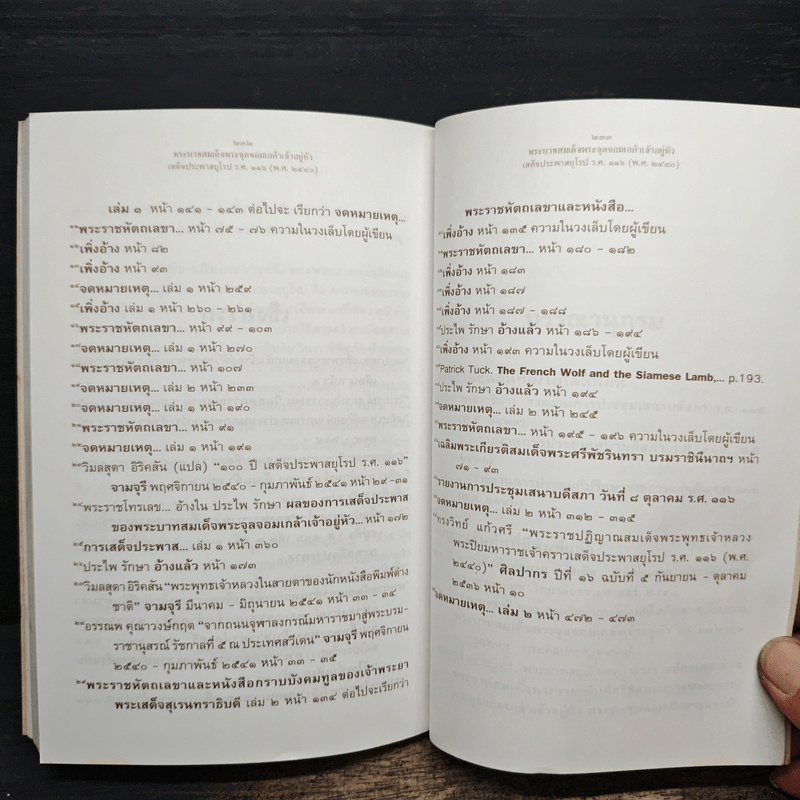 ๒๓๒
พระบาทสมเด็จพระจุลจอมเกล้าเจ้าอยู่หัว
เสด็จประพาสยุโรป ร.ศ. ๑๑๖ (พ.ศ. ๒๔๔๐)
เล่ม ๑ หน้า ๑๔๑ - ๑๔๓ ต่อไปจะ เรียกว่า จดหมายเหตุ...
พระราชหัตถเลขา... หน้า ๗๕ - ๗๖ ความในวงเล็บโดยผู้เขียน
เพิ่งอ้าง หน้า ๘๒
เพิ่งอ้าง หน้า ๙๓
จดหมายเหตุ... เล่ม ๑ หน้า ๒๕๙
เพิ่งอ้าง เล่ม ๑ หน้า ๒๖๐ - ๒๖๑
พระราชหัตถเลขา... หน้า ๙๙ - ๑๐๓
จดหมายเหตุ... เล่ม ๑ หน้า ๒๗๐
พระราชหัตถเลขา... หน้า ๑๐๗
จดหมายเหตุ... เล่ม ๒ หน้า ๒๓๓
จดหมายเหตุ... เล่ม ๑ หน้า ๑๙๐
พระราชหัตถเลขา... หน้า ๙๑
จดหมายเหตุ... เล่ม ๑ หน้า ๑๙๑
วิมลสุดา อิริคสัน (แปล) “๑๐๐ ปี เสด็จประพาสยุโรป ร.ศ. ๑๑๖”
จามจุรี พฤศจิกายน ๒๕๔๐ - กุมภาพันธ์ ๒๕๔๑ หน้า ๒๙ -๓๑
พระราชโทรเลข... อ้างใน ประไพ รักษา ผลของการเสด็จประพาส
ของพระบาทสมเด็จพระจุลจอมเกล้าเจ้าอยู่หัว... หน้า ๑๗๒
การเสด็จประพาส... เล่ม ๑ หน้า ๓๖๐
ประไพ รักษา อ้างแล้ว หน้า ๑๗๓
วิมลสุดา อิริคสัน “พระพุทธเจ้าหลวงในสายตาของนักหนังสือพิมพ์ต่าง
ชาติ” จามจุรี มีนาคม - มิถุนายน ๒๕๔๑ หน้า ๓๓ - ๓๔
อรรณพ คุณาวงษ์กฤต “จากถนนจุฬาลงกรณ์มหาราชมาสู่พระบรม-
ราชานุสรณ์ รัชกาลที่ ๕ ณ ประเทศสวีเดน” จามจุรี พฤศจิกายน
๒๕๔๐ - กุมภาพันธ์ ๒๕๔๑ หน้า ๓๓ - ๓๕
พระราชหัตถเลขาและหนังสือกราบบังคมทูลของเจ้าพระยา
พระเสด็จสุเรนทราธิบดี เล่ม ๒ หน้า ๑๓๔ ต่อไปจะเรียกว่า
๒๓๓
พระบาทสมเด็จพระจุลจอมเกล้าเจ้าอยู่หัว
เสด็จประพาสยุโรป ร.ศ. ๑๑๖ (พ.ศ. ๒๔๔๐)
พระราชหัตถเลขาและหนังสือ...
เพิ่งอ้าง หน้า ๑๓๕ ความในวงเล็บโดยผู้เขียน
พระราชหัตถเลขา... หน้า ๑๘๐ - ๑๘๒
เพิ่งอ้าง หน้า ๑๘๓
เพิ่งอ้าง หน้า ๑๘๗
เพิ่งอ้าง หน้า ๑๘๗ - ๑๘๘
ประไพ รักษา อ้างแล้ว หน้า ๑๘๖ - ๑๙๔
เพิ่งอ้าง หน้า ๑๙๓ ความในวงเล็บโดยผู้เขียน
Patrick Tuck. The French Wolf and the Siamese Lamb,... p.193.
ประไพ รักษา อ้างแล้ว หน้า ๑๙๔
จดหมายเหตุ... เล่ม ๒ หน้า ๒๔๕
พระราชหัตถเลขา... หน้า ๑๙๕ - ๑๙๖ ความในวงเล็บโดยผู้เขียน
เฉลิมพระเกียรติสมเด็จพระศรีพัชรินทรา บรมราชินีนาถฯ หน้า
๗๑ - ๙๓
รายงานการประชุมเสนาบดีสภา วันที่ ๘ ตุลาคม ร.ศ. ๑๑๖
จดหมายเหตุ... เล่ม ๒ หน้า ๓๑๒ - ๓๑๕
ทรงวิทย์ แก้วศรี “พระราชปฏิญาณสมเด็จพระพุทธเจ้าหลวง
พระปิยมหาราชเจ้าคราวเสด็จประพาสยุโรป ร.ศ. ๑๑๖ (พ.ศ.
๒๔๔๐)” ศิลปากร ปีที่ ๑๖ ฉบับที่ ๕ กันยายน - ตุลาคม
๒๕๓๖ หน้า ๑๐
จดหมายเหตุ... เล่ม ๒ หน้า ๔๗๒ - ๔๗๓